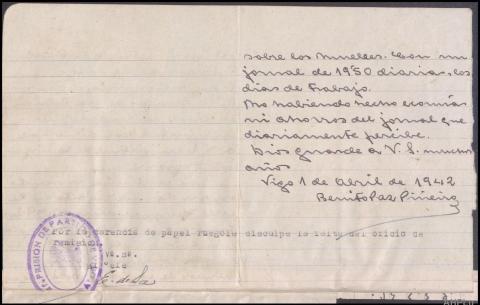 sobre los muelles. Con un
jornal de 1950 diarias, los
dias de trabajo.
No habiendo hecho economías
ni ahorros del jornal que
diariamente percibe.
Dios guarde a V. S. muchos
años
Vigo 1 de Abril de 1942
Benito Paz Piñeiro
Por la carencia de papel ruegole disculpe la falta del oficio de
remision
PRISION DE PARTIDO